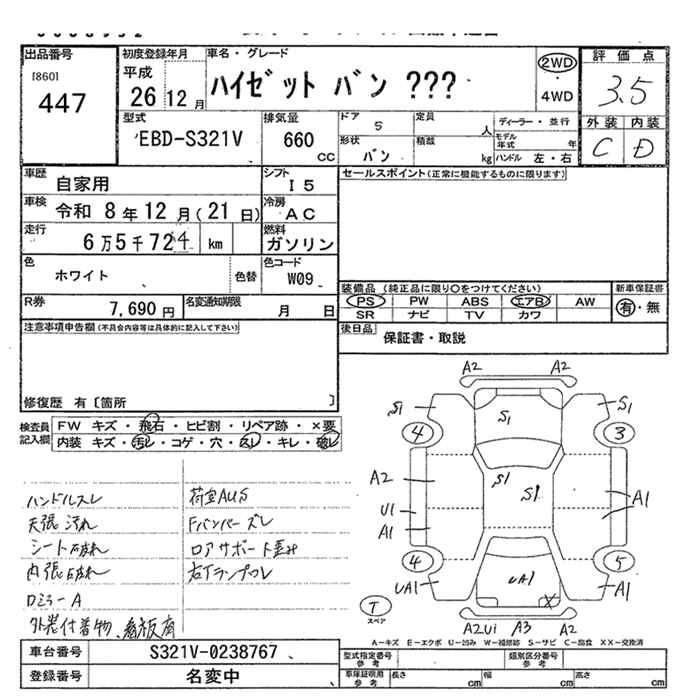 出品番号
[860]
447
初度登録年月
平成
26 12 月
車名・グレード
ハイゼット バン ???
2WD
4WD
評価点
3.5
外装 内装
C D
型式
EBD-S321V
排気量
660
CC
ドア
5
定員
人
形状
バン
積載
kg
ディーラー・並行
モデル年式
年
ハンドル 左・右
車歴
自家用
シフト
I 5
車検
令和 8年 12月(21日)
冷房
AC
走行
6万5千724 km
燃料
ガソリン
色
ホワイト
色替
色コード
W09
R券
7,690 円
名変通知期限
月 日
セールスポイント(正常に機能するものに限ります)
装備品(純正品に限り○をつけてください)
新車保証書
PS PW ABS エアB AW
SR ナビ TV カワ
有・無
後日品
保証書・取説
注意事項申告欄(不具合内容等は具体的に記入して下さい)
修復歴 有〔箇所 〕
検査員記入欄
FW キズ・飛石・ヒビ割・リペア跡・×要
内装 キズ・汚レ・コゲ・穴・スレ・キレ・破レ
ハンドルスレ
天張汚れ
シート破れ
内張破れ
Dミラー A
外装付着物、看板痕
荷室AUS
Fバンパーズレ
ロアサポート歪み
右Tランプワレ
A2 A2
S1 S1 S1
4 3
A2 S1 S1
U1 A1
A1
4 5
UA1 UA1 A1
T
スペア
X
A2U1 A3 A2
A-キズ E-エクボ U-凹み W-補修跡 S-サビ C-腐食 XX-交換済
車台番号
S321V-0238767
登録番号
名変中
型式指定番号
参考
類別区分番号
参考
車庫証明用
参考
長さ cm 幅 cm 高さ cm